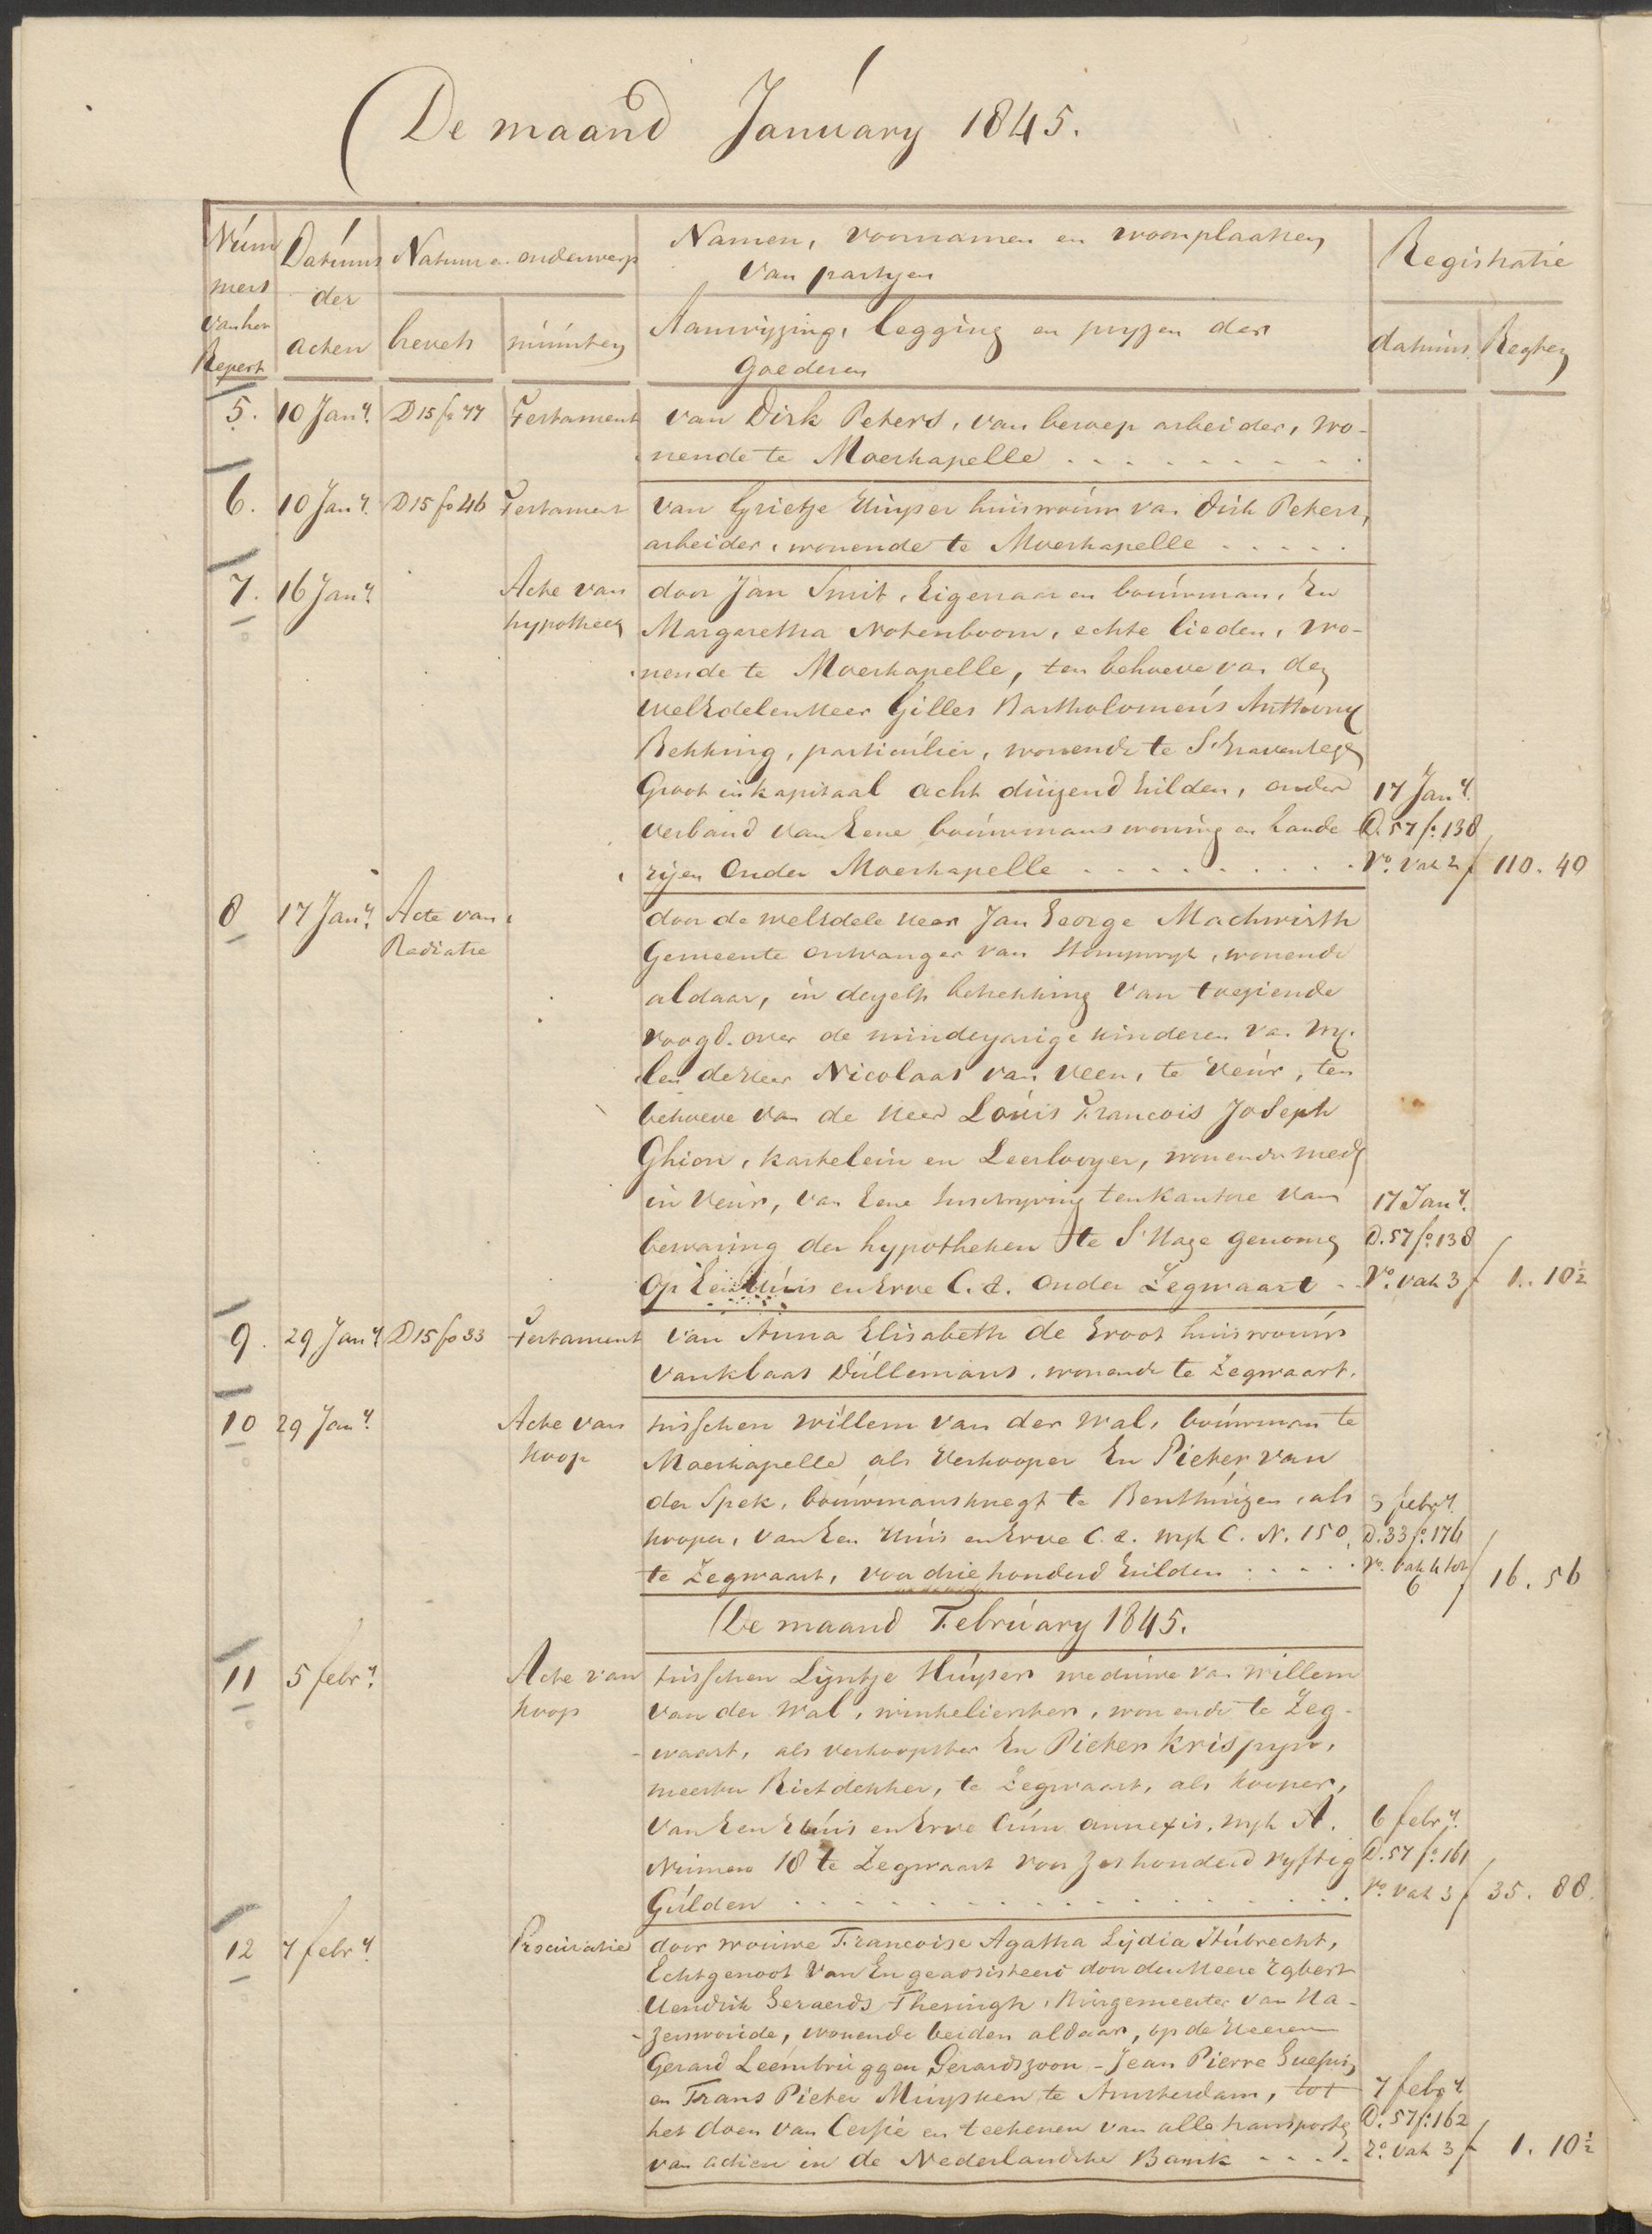 De maand January 1845.
Num
mers
van het
Repert
Datums
der
acten
Natuur en onderwerp
brevets
minuten
Namen, voornamen en woonplaatsen
van partyen
Aanwyzing, legging en pryzen der
goederen
Registratie
datums
Regten
5. 10 Jany. D15 fo 77 Testament van Dirk Peters, van beroep arbeider, wo-
nende te Moerkapelle
6. 10 Jany. D15 fo 46 Testament van Grietje Kuyper huisvrouw van Dirk Peters,
arbeider, wonende te Moerkapelle
7. 16 Jany. Acte van door Jan Smit, Eigenaar en bouwman, En
hypotheek Margaretha Notenboom, echte lieden, wo-
nende te Moerkapelle, ten behoeve van den
WelEdelen Heer Gilles Bartholomeus Anthony
Bekking, particulier, wonende te S'Gravenhage
Groot in kapitaal acht duizend Gulden, onder 17 Jany.
verband van Eene bouwmans woning en lande D. 57 fo. 138
ryen Onder Moerkapelle Vo. vak 2 f 110. 40
8 17 Jany. Acte van door de welEdele Heer Jan George Machwirth
Radiatie Gemeente ontvanger van Stompwyk, wonende
aldaar, in deszelfs betrekking van toeziende
voogd over de minderjarige kinderen van wy-
len de Heer Nicolaas van Veen, te Veur, ten
behoeve van de Heer Louis Francois Joseph
Ghion, kastelein en Leerlooyer, wonende mede
in Veur, van Eene Inschryving ten kantore van 17 Jany.
bewaring der hypotheken te S'Hage genomen D. 57 fo. 138
op Een Huis en Erve C. a. onder Zegwaart Vo. vak 3 f 1. 10½
9. 29 Jany. D15 fo 33 Testament van Anna Elisabeth de Groot huisvrouw
van Klaas Dullemans, wonende te Zegwaart.
10 29 Jany. Acte van tusschen Willem van der Wal, bouwman te
koop Moerkapelle als Verkooper En Pieter van
der Spek, bouwmansknegt te Benthuizen, als 3 febry.
kooper, van Een Huis en Erve C. a. wyk C. N. 150, D. 33 fo. 176
te Zegwaart, voor drie honderd Gulden Vo. vak 4 tot
6 f 16. 56
De maand February 1845.
11 5 febry. Acte van tusschen Lyntje Huysen weduwe van Willem
koop van der Wal, winkelierster, wonende te Zeg-
waart, als verkoopster En Pieter Krispyn,
meester Rietdekker, te Zegwaart, als kooper,
van Een Huis en Erve Cum annexis, wyk A. 6 febry.
Numero 18 te Zegwaart voor zes honderd vyftig D. 57 fo. 161
Gulden Vo. vak 3 f 35. 88.
12 7 febry. Procuratie door vrouwe Francoise Agatha Lydia Hubrecht,
Echtgenoot van En geassisteerd door den Heere Egbert
Hendrik Geraerds Thesingh, Burgemeester van Ha-
zerswoude, wonende beiden aldaar, op de Heeren
Gerard Leembruggen Gerardszoon - Jean Pierre Guepin,
en Frans Pieter Muysken te Amsterdam, tot 7 febry.
het doen van Cessie en teekenen van alle transporten D. 57 fo. 162
van actien in de Nederlandsche Bank Ro. vak 3 f 1. 10½